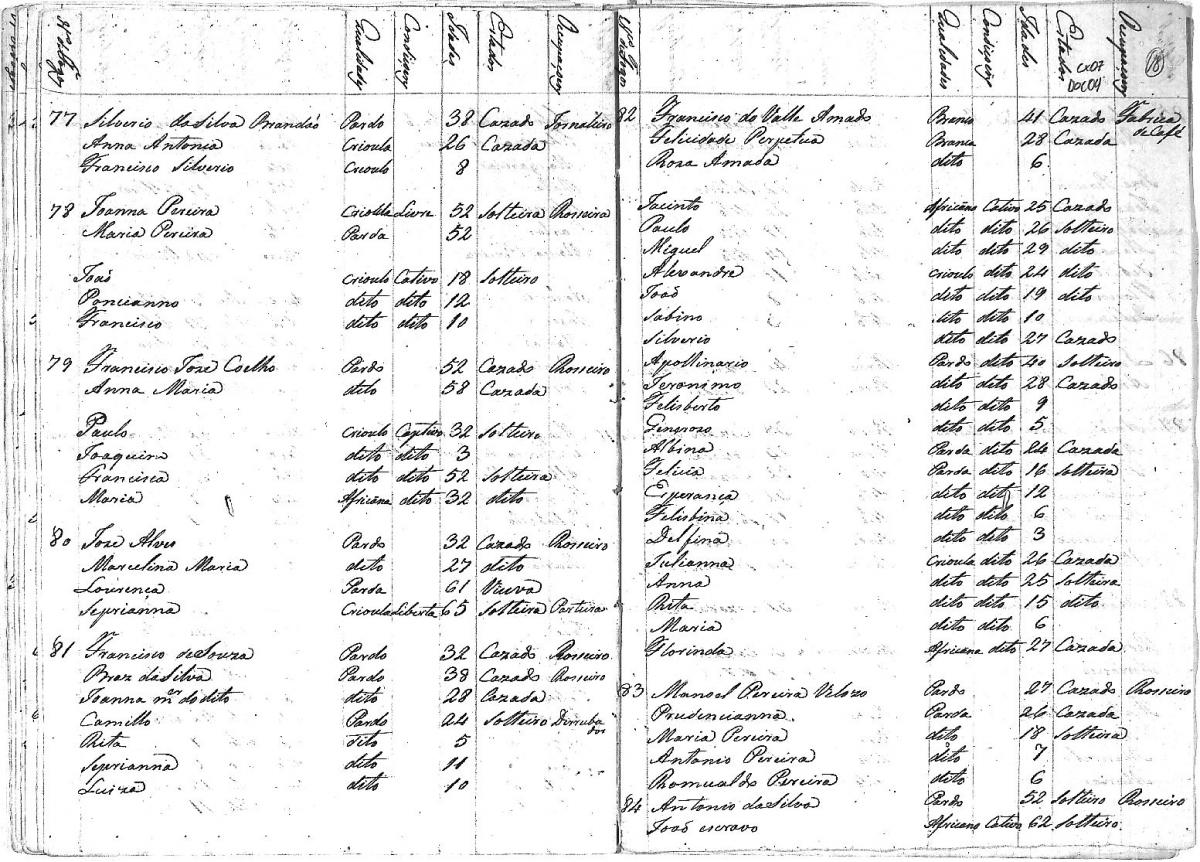 Nº de fogos Qualidades Condiçoens Idades Estados Ocupaçoens
77 Silverio da Silva Brandão Pardo 38 Cazado Jornaleiro
Anna Antonia Crioula 26 Cazada
Francisco Silverio Crioulo 8
78 Joanna Pereira Crioula Livre 52 Solteira Rosseira
Maria Pereira Parda 52
João Crioulo Cativo 18 Solteiro
Poncianno dito dito 12
Francisco dito dito 10
79 Francisco Joze Coelho Pardo 52 Cazado Rosseiro
Anna Maria dito 58 Cazada
Paulo Crioulo Captivo 32 Solteiro
Joaquim dito dito 3
Francisca dito dito 52 Solteira
Maria Africana dito 32 dito
80 Joze Alves Pardo 32 Cazado Rosseiro
Marcelina Maria dito 27 dito
Lourença Parda 61 Viuva
Seprianna Crioula Liberta 65 Solteira Parteira
81 Francisco de Souza Pardo 32 Cazado Rosseiro
Braz da Silva Pardo 38 Cazado Rosseiro
Joanna mer do dito dito 28 Cazada
Camillo Pardo 24 Solteiro Dirruba
dor
Rita dito 5
Seprianna dito 11
Luiza dito 10
Nº de fogos Qualidades Condiçoens Idades Estados Ocupaçoens
18
CX07
DOC04
82 Francisco do Valle Amado Branco 41 Cazado Fabrica
de Café
Felicidade Perpetua Branca 28 Cazada
Roza Amada dito 6
Jacinto Africano Cativo 25 Cazado
Paulo dito dito 26 Solteiro
Miguel dito dito 29 dito
Alexandre Crioulo dito 24 dito
João dito dito 19 dito
Sabino dito dito 10
Silverio dito dito 27 Cazado
Apollinario Pardo dito 40 Solteiro
Jeronimo dito dito 28 Cazado
Felisberto dito dito 9
Generozo dito dito 5
Albina Parda dito 24 Cazada
Felicia Parda dito 16 Solteira
Esperança dito dito 12
Felisbina dito dito 6
Delfina dito dito 3
Julianna Crioula dito 26 Cazada
Anna dito dito 25 Solteira
Rita dito dito 15 dito
Maria dito dito 6
Florinda Africana dito 27 Cazada
83 Manoel Pereira Velozo Pardo 27 Cazado Rosseiro
Prudencianna Parda 26 Cazada
Maria Pereira dito 18 Solteira
Antonio Pereira dito 7
Romualdo Pereira dito 6
84 Antonio da Silva Pardo 52 Solteiro Rosseiro
João escravo Africano Cativo 62 Solteiro